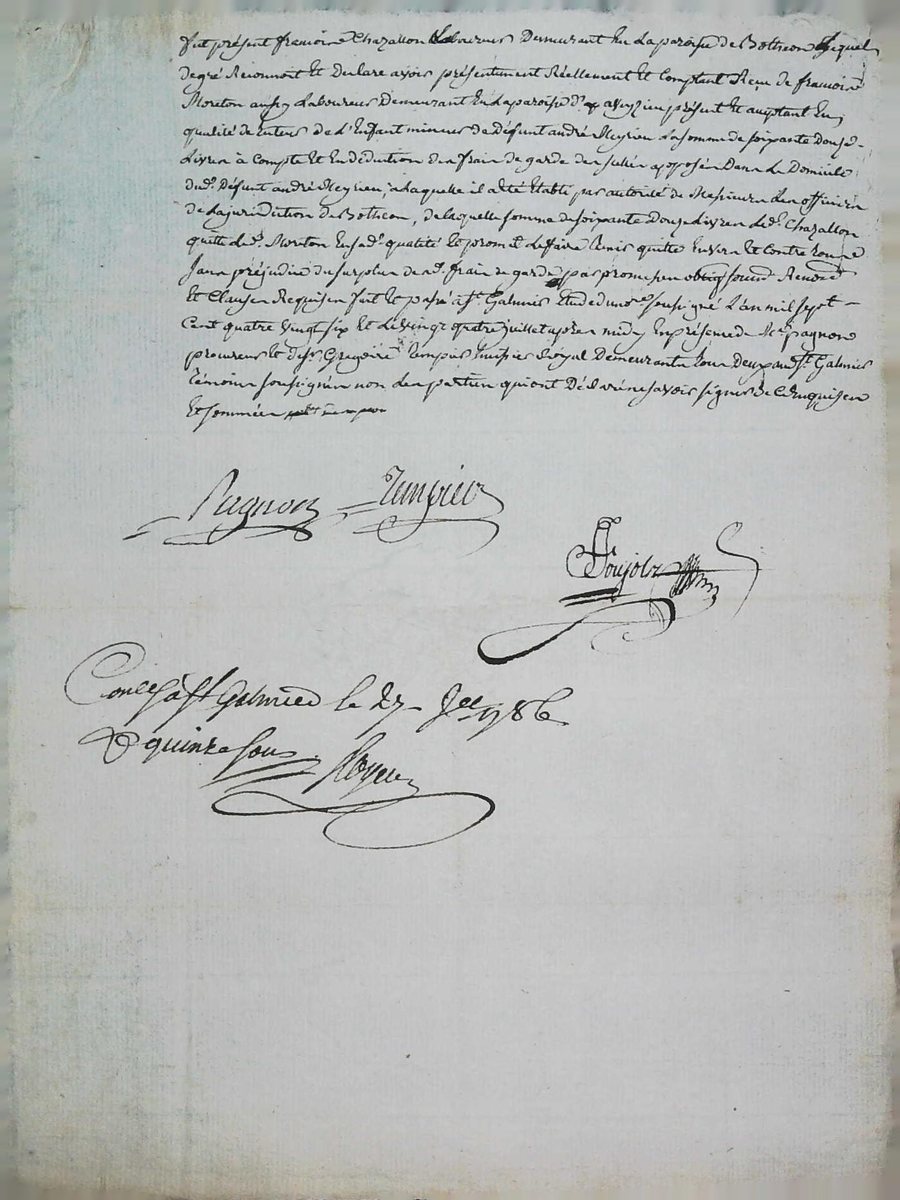 fut présent francoise Chazallon Laboureur Demeurant En La paroisse de Botheon Lequel
de gré Reconnoit Et declare avoir présentement Réellement Et Comptant Receu de francoise
Moreton aussy Laboureur Demeurant En La paroisse d' aveyzieu présent Et acceptant En
qualité de tuteur de L'Enfant mineur de Défunt andré Meyrieu La somme de soixante Douze
Livres à Compte Et En déduction des frais de garde des scellés apposés Dans Le Domicile
dud. Défunt andré Meyrieu, a laquelle il a été Etabli par autorité de Messieurs Les officiers
de La juridiction de Botheon, de laquelle somme de soixante Douze Livres Led. Chazallon
quitte led. Moreton En sad. qualité Et promet Le faire tenir quitte Envers Et Contre tous
sans préjudice du surplus desd. frais de garde, par promesses oblig soumd Renond
Et Clauses Requises fait Et passé à St. Galmier Etude du nore. soussigné L'an mil sept
Cent quatre vingt six Et Le vingt quatre juillet après midy En présence de Me. pagnon
procureur Et de sr. Gregoire tempier huissier Royal Demeurants tous Deux aud. St. Galmier
témoins soussignés non Les parties qui ont Déclaré ne savoir signer de Ce Enquises
Et sommées
Pagnon Tempier
Poujol
Conlé à St Galmier le 27 Jet 1786
R quinze sous. Royer